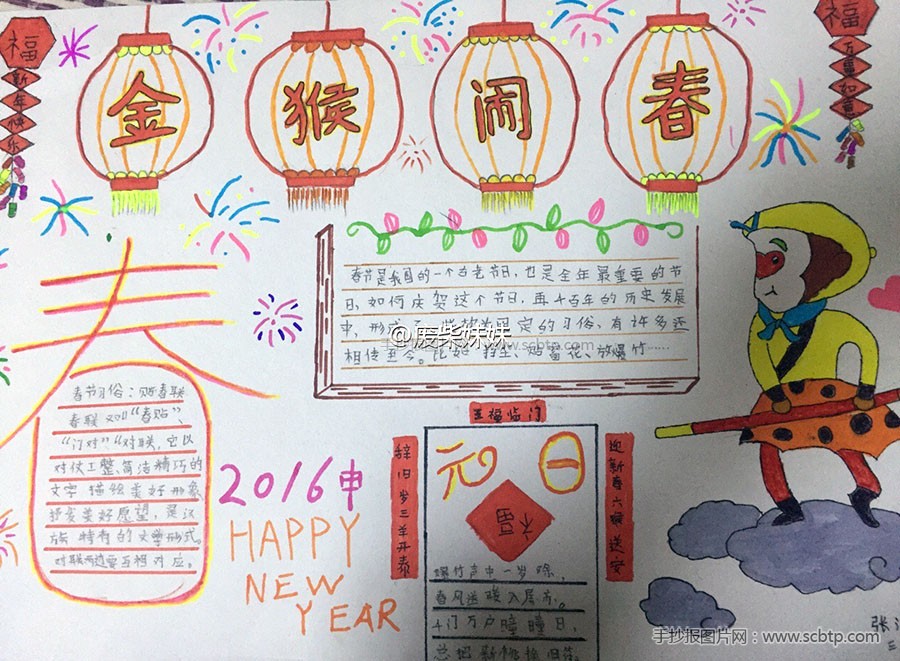 福
新年快乐
金猴闹春
福
万事如意
春节是我国的一个古老节日,也是全年最重要的节
日,如何庆贺这个节日,再千百年的历史发展
中,形成了一些较为固定的习俗、有许多还
相传至今。比如 扫尘、贴窗花、放爆竹……
@废柴妹妹
www.scbtp.com
春
春节习俗:贴春联
春联又叫“春贴”、
“门对”“对联,它以
对仗工整、简洁精巧的
文字描绘美好形象
抒发美好愿望,是汉
族特有的文学形式。
对联两边要互相对应。
2016申
HAPPY
NEW
YEAR
五福临门
辞旧岁三羊开泰
迎新春六猴送安
元日
福
爆竹声中一岁除,
春风送暖入屠苏。
千门万户瞳瞳日,
总把新桃换旧符。
张
三
手抄报图片网:www.scbtp.com